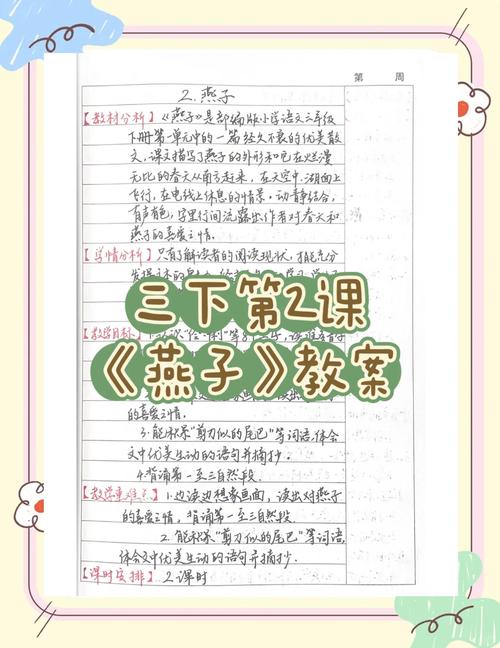 第 周
2.燕子
【教材分析】《燕子》是部编版小学语文三年级
下册第一单元中的一篇经久不衰的优美散
文,课文描写了燕子的外形和它在烂漫
无比的春天从南方赶来,在天空中,湖面上
飞行,在电线上休息的情景。动静结合,
有声有色,字里行间流露出作者对春天和
燕子的喜爱之情。
【学情分析】只有了解读者的阅读现状,才能充分
三下第2课
【教学目标】
《燕子》教案
的喜爱之情。
3.能积累“剪刀似的尾巴”等词语,体会
文中优美生动的语句并摘抄。
4.背诵第一至三自然段。
【教学重难点】1.边读边想象画面,读出对燕子
的喜爱之情,背诵第一至三自然段。
2.能积累“剪刀似的尾巴”等词语,
体会文中优美生动的语句并摘抄。
【课时安排】2课时